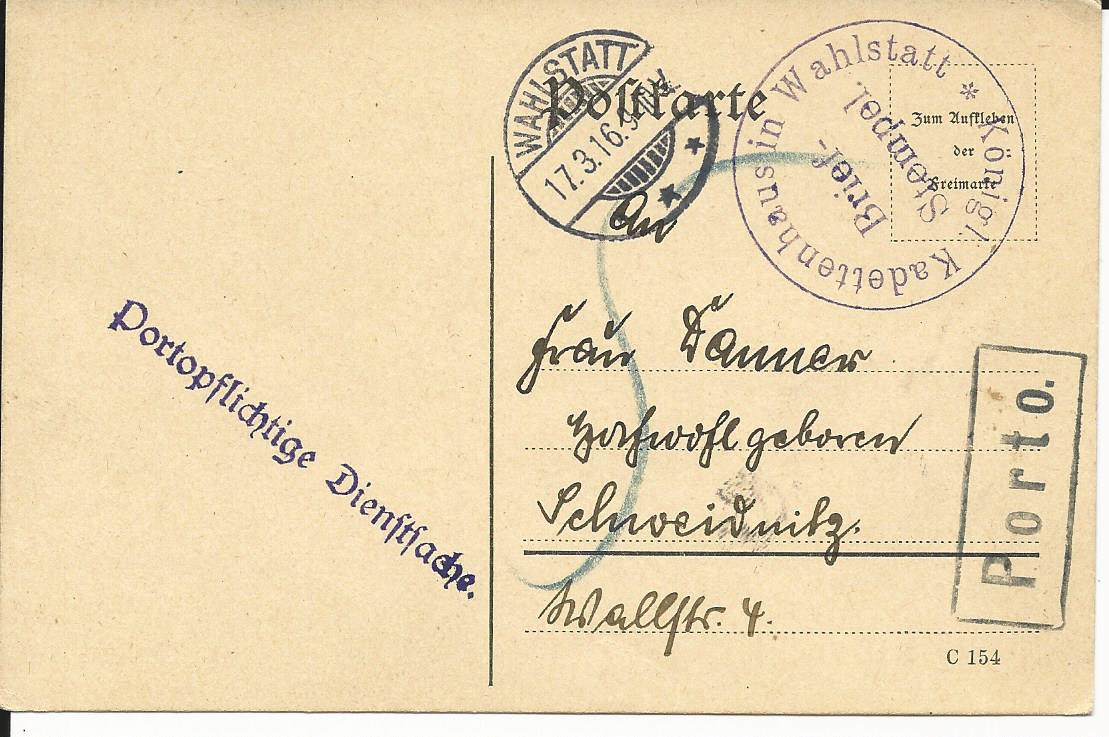 Postkarte
WAHLSTATT
17.3.16.9-10V.
Königl. Kadettenhaus in Wahlstatt *
Brief-
Stempel.
Zum Aufkleben
der
Freimarke
An
Frau Danner
Hochwohlgeboren
Schweidnitz.
Wallstr. 4.
Portopflichtige Dienstsache.
Porto.
C 154